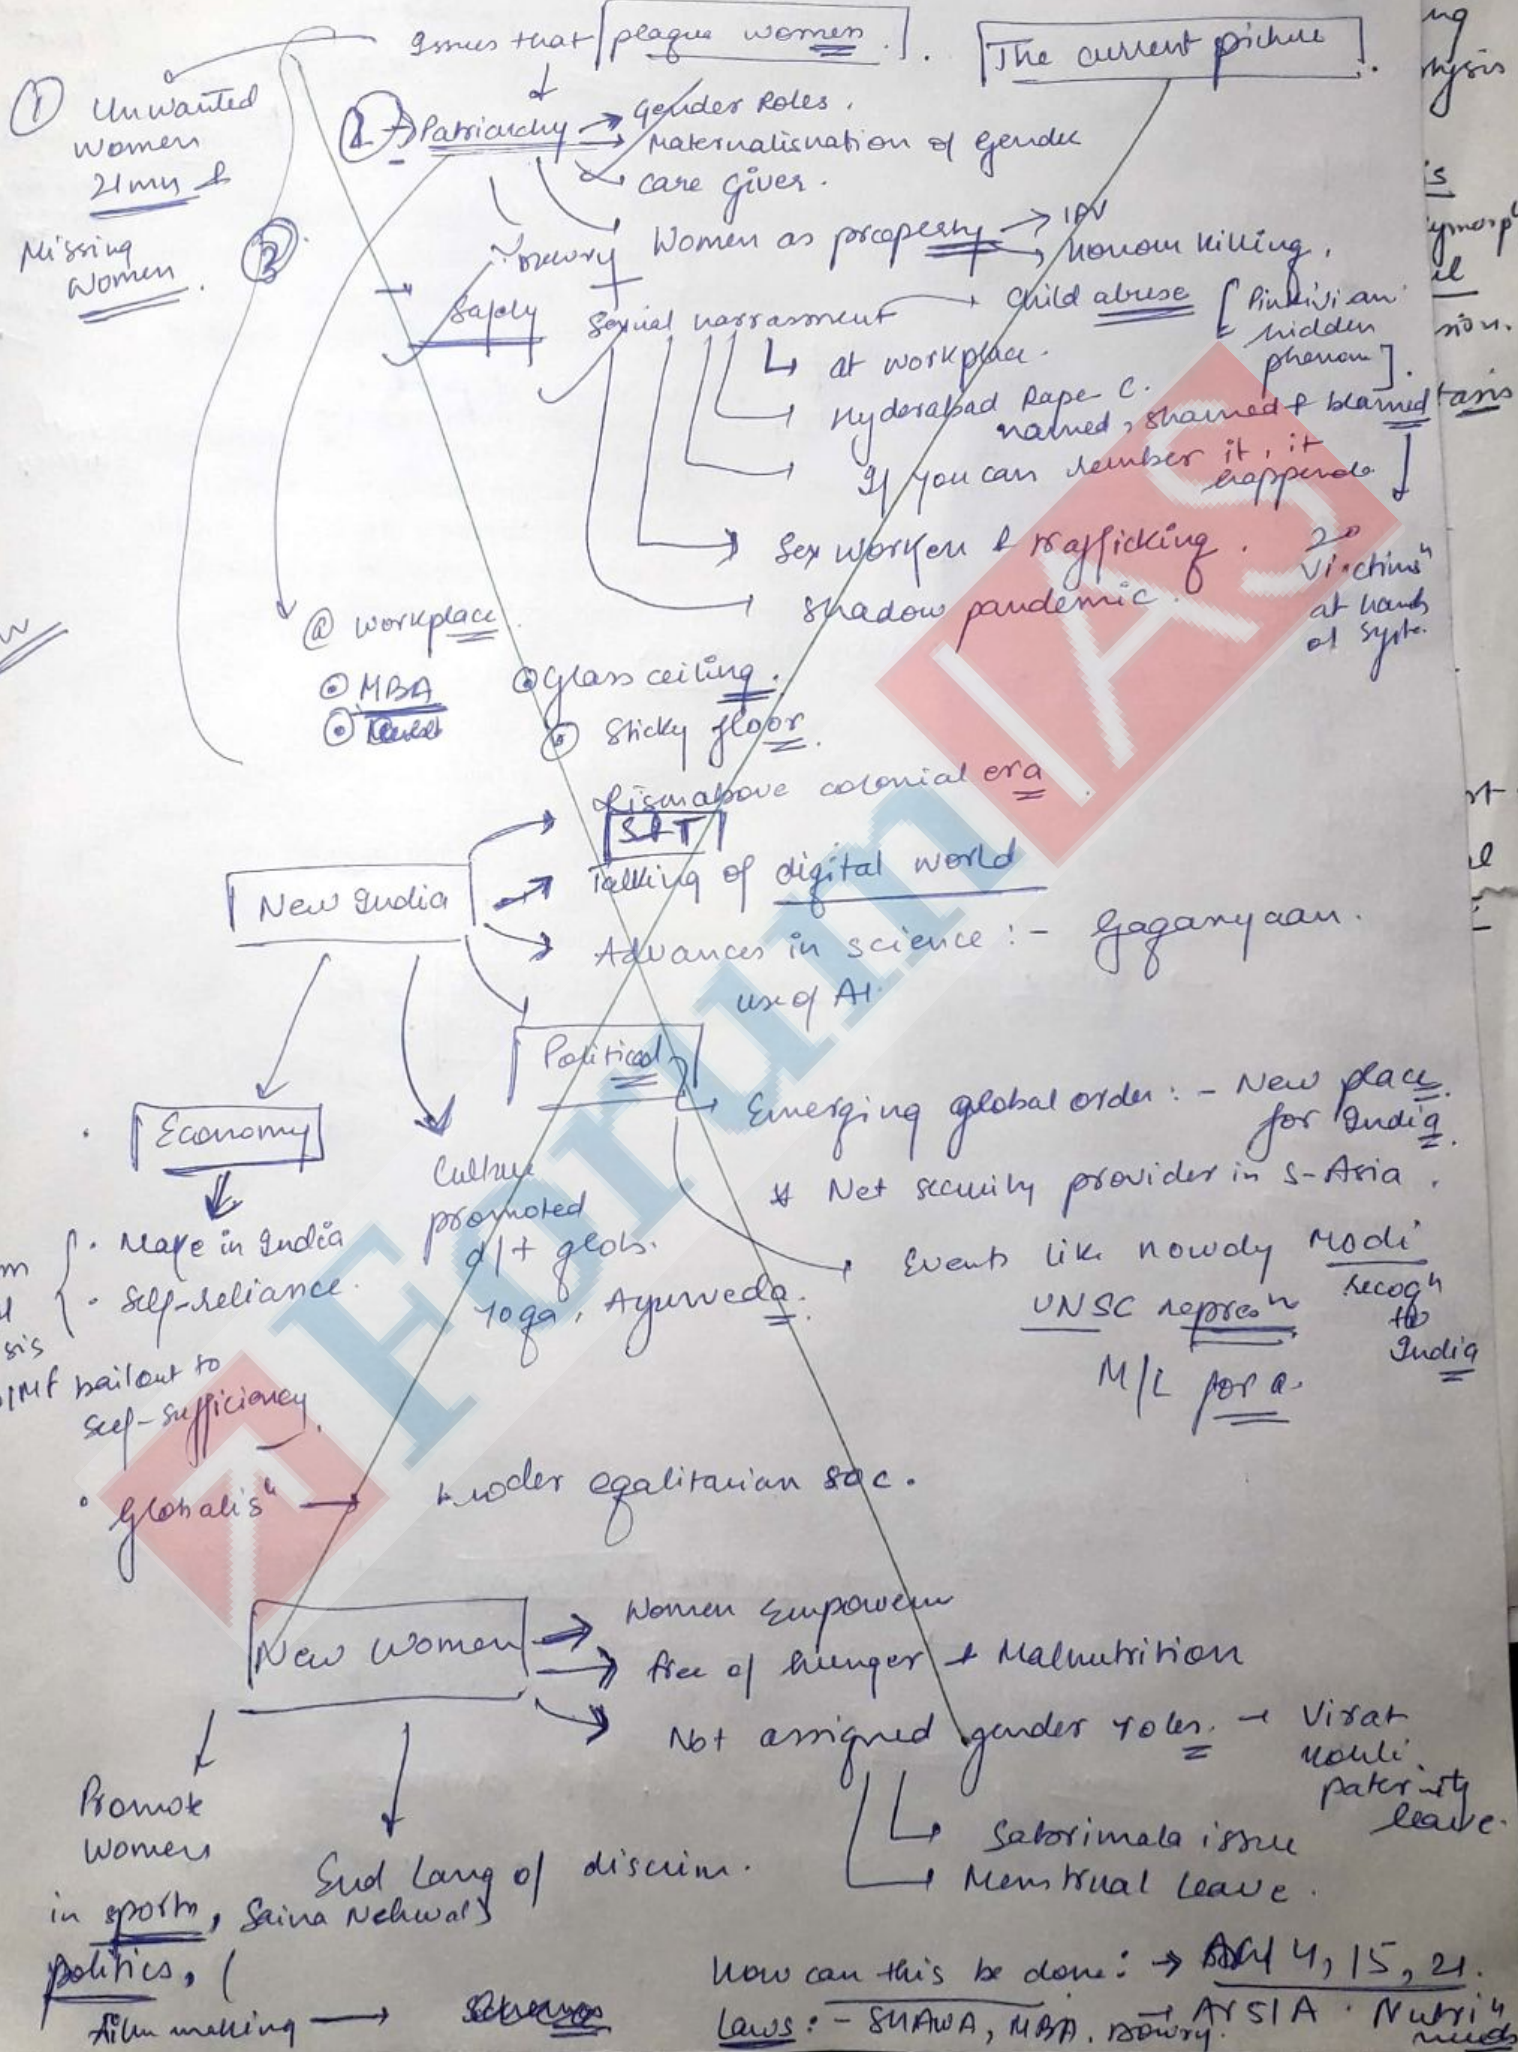 Issues that plague women.
The current picture.
① Unwanted
Women
21mn &
Missing
Women.
2 → Patriarchy → Gender Roles.
Maternalisnation of Gender
Care Giver.
③
Dowry
Women as property → IPV
Honour Killing.
Safety
Sexual harrasment
Child abuse
hidden
phenom].
at workplace.
Hyderabad Rape C.
named, shamed & blamed
If you can remember it, it
happened.
Sex worker & trafficking.
Shadow pandemic.
2°
Victims"
at hands
of Syste.
@ workplace.
MBA
Glass ceiling.
Sticky floor.
colonial era
S&T
New India
Talking of digital world
Advances in science :- Gaganyaan.
use of AI.
Political
Economy
Emerging global order :- New place
for India.
* Net security provider in S-Asia.
Culture
promoted
d/t glob.
Yoga, Ayurveda.
Events like Howdy Modi
recogⁿ
to
India
UNSC represⁿ
M/L fora.
· Make in India
· Self-reliance.
sis
IMF bailout to
Self-sufficiency.
° Globalisⁿ →
egalitarian soc.
New Women
Women Empowerm
free of hunger + Malnutrition
Not assigned gender roles. → Virat
Kohli.
paternity
leave.
Sabrimala issue
Menstrual leave.
Promote
Women
in sports, Saina Nehwal
politics, (
Film making → Schemes
End Lang of discrim.
How can this be done: → Art 14, 15, 21.
Laws :- SHAWA, MBA. Dowry.
Nutriⁿ
needs
Forum IAS